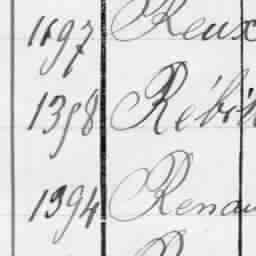 1197 Reux
1398 Rébi
1394 Renau